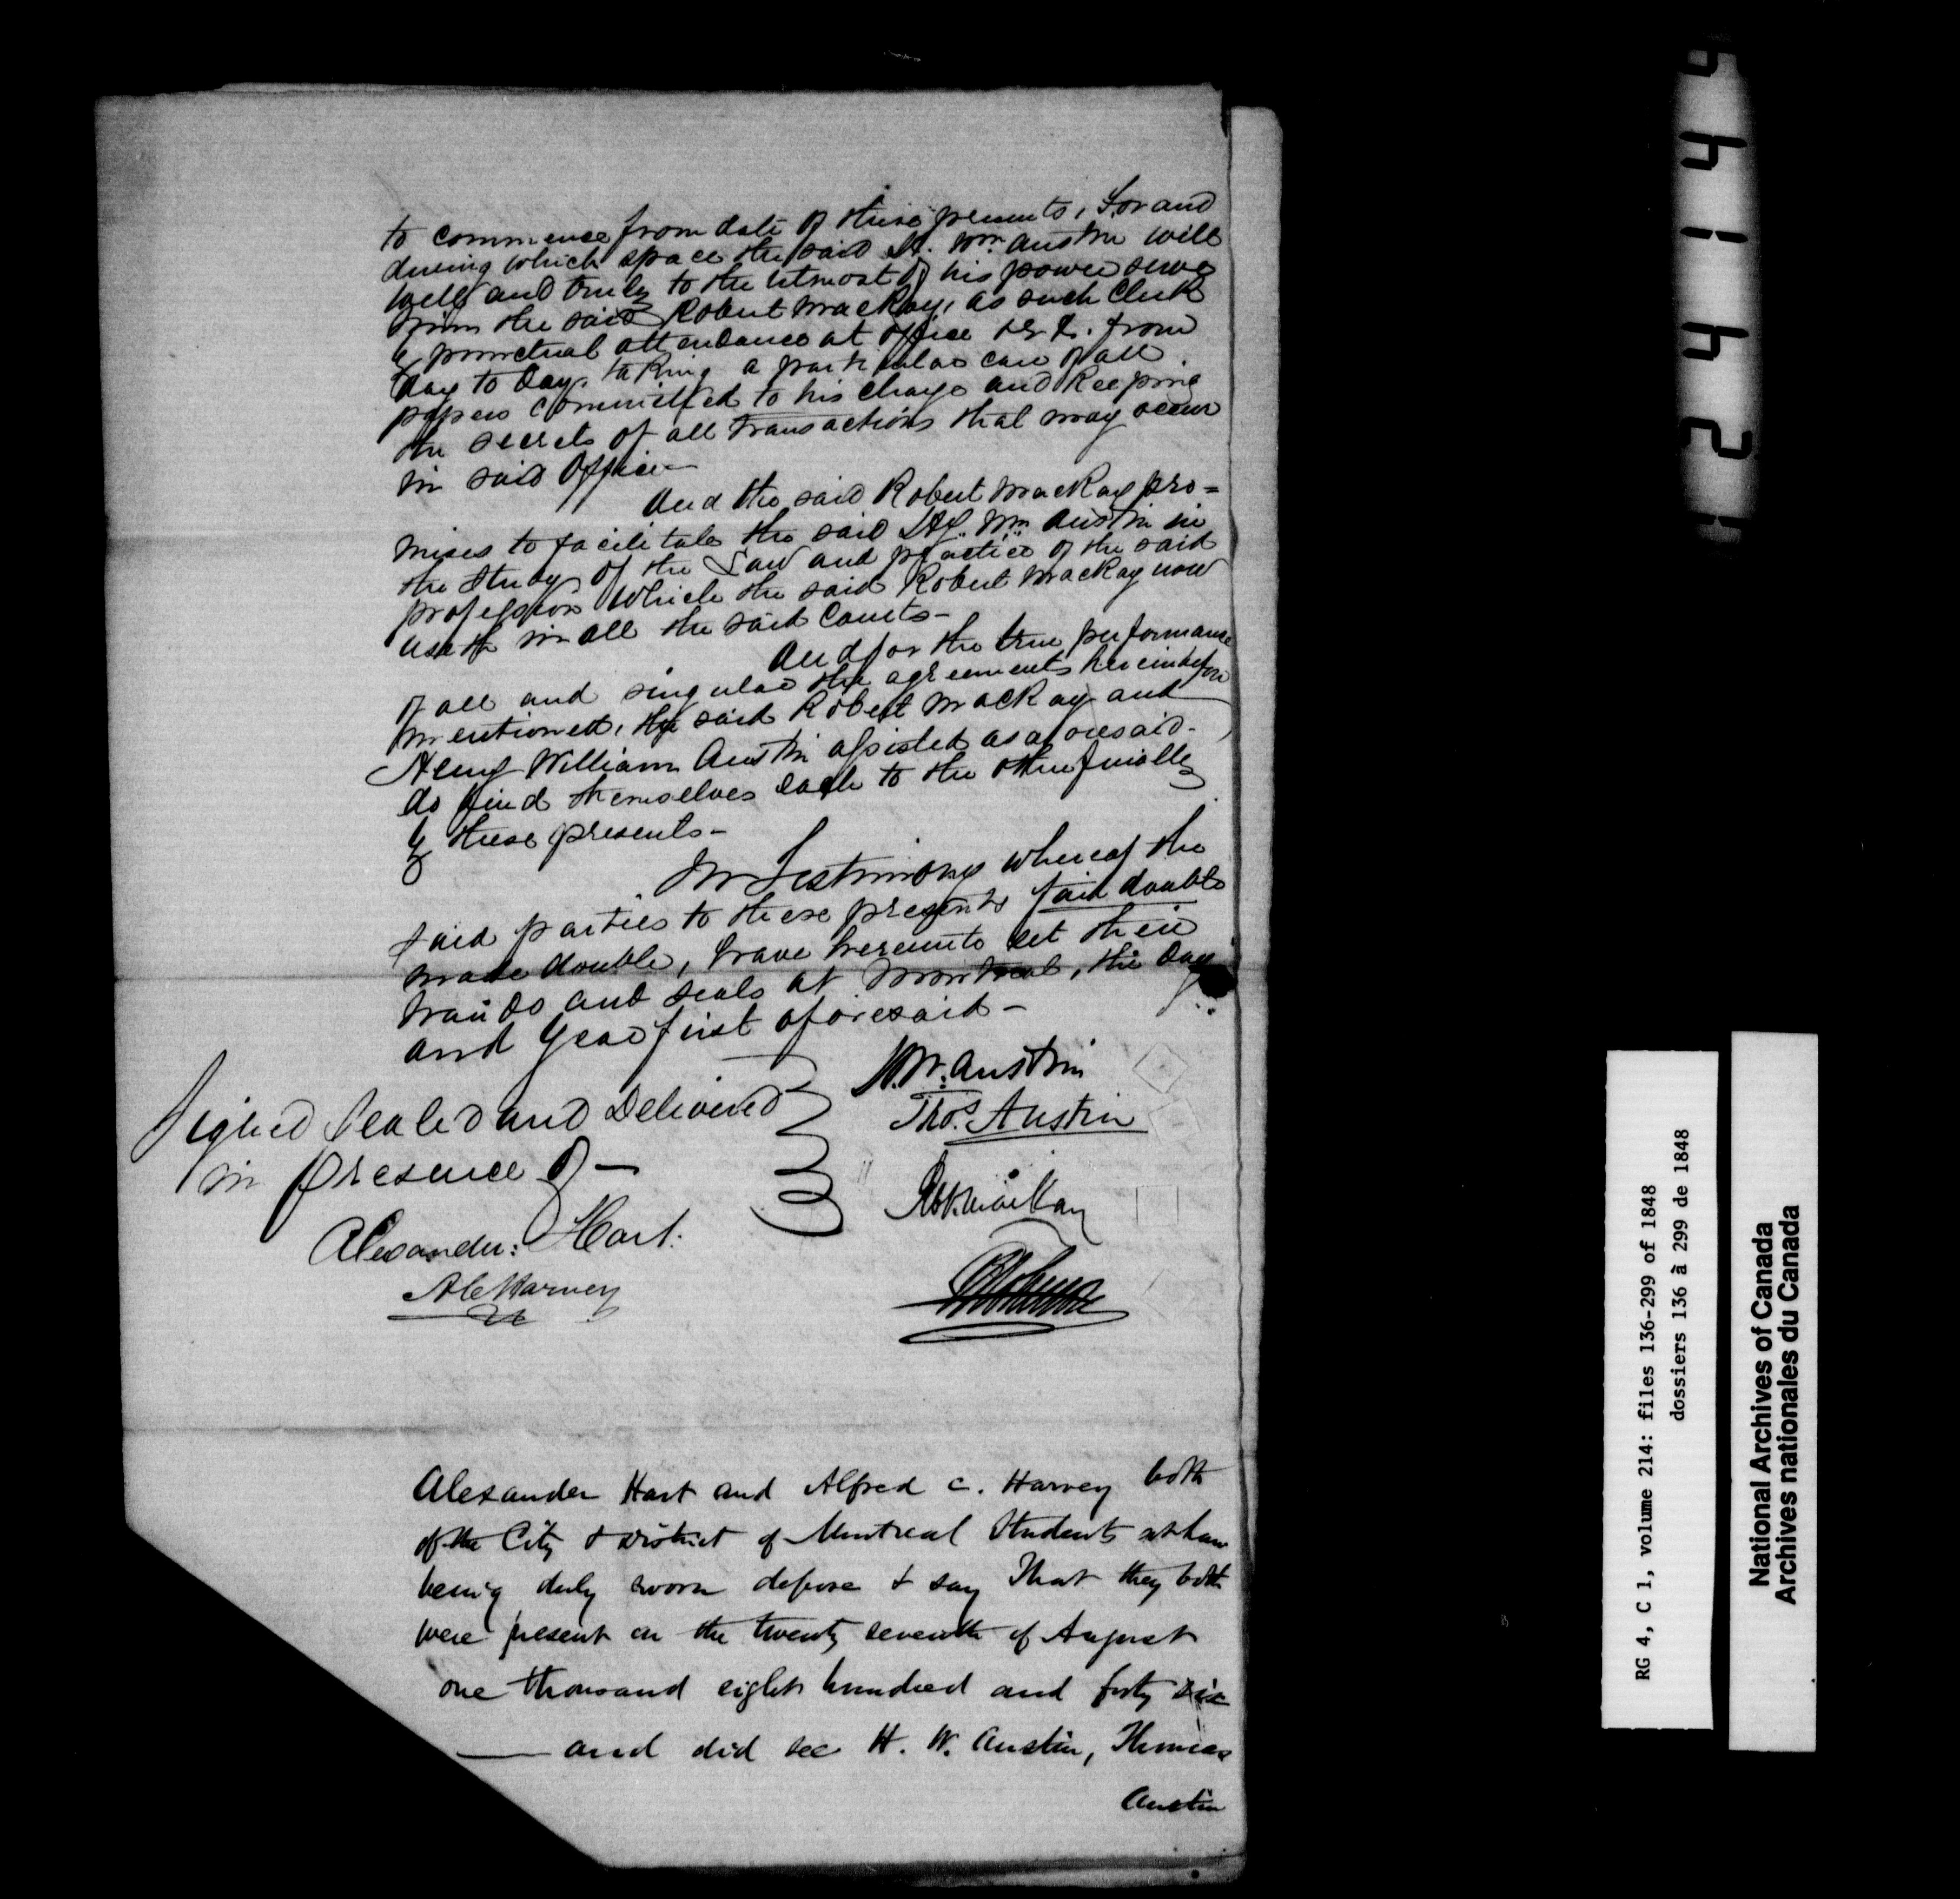 to commence from date of these presents, for and
during which space the said H. Wm. Austin will
well and truly to the utmost of his power serve
him the said Robert Mackay, as such Clerk
by punctual attendance at office &c &c. from
day to day, taking a particular care of all
papers committed to his charge and keeping
the secrets of all transactions that may occur
in said Office—
And the said Robert Mackay pro=
mises to facilitate the said Hy. Wm. Austin in
the study of the Law and practice of the said
profession which the said Robert Mackay now
useth in all the said Courts—
And for the true performance
of all and singular the agreements hereinbefore
mentioned, the said Robert Mackay and
Henry William Austin assisted as aforesaid-
do bind themselves each to the other firmly
by these presents—
In Testimony whereof the
said parties to these presents said double
made double, have hereunto set their
hands and seals at Montreal, the day
and year first aforesaid—
H. W. Austin
Thos. Austin
Signed Sealed and Delivered
in presence of—
Alexander: Hart.
A C Harvey
Alexander Hart and Alfred C. Harvey both
of the City & District of Montreal Students at Law
being duly sworn depose & say That they both
were present on the twenty seventh of August
one thousand eight hundred and forty six
— and did see H. W. Austin, Thomas
Austin
4 1 4 4 2
RG 4, C 1, volume 214: files 136-299 of 1848
dossiers 136 à 299 de 1848
National Archives of Canada
Archives nationales du Canada